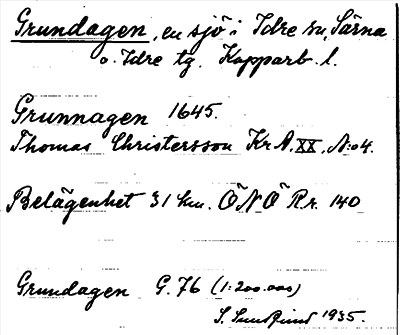 Grundagen, en sjö i Idre sn, Särna
o. Idre tg. Kopparb. l.
Grunnagen 1645.
Thomas Christersson Kr A. XX, N:o 4.
Belägenhet 31 km. ÖNÖ R.r. 140
Grundagen G. 76 (1:200.000)
S. 1935.